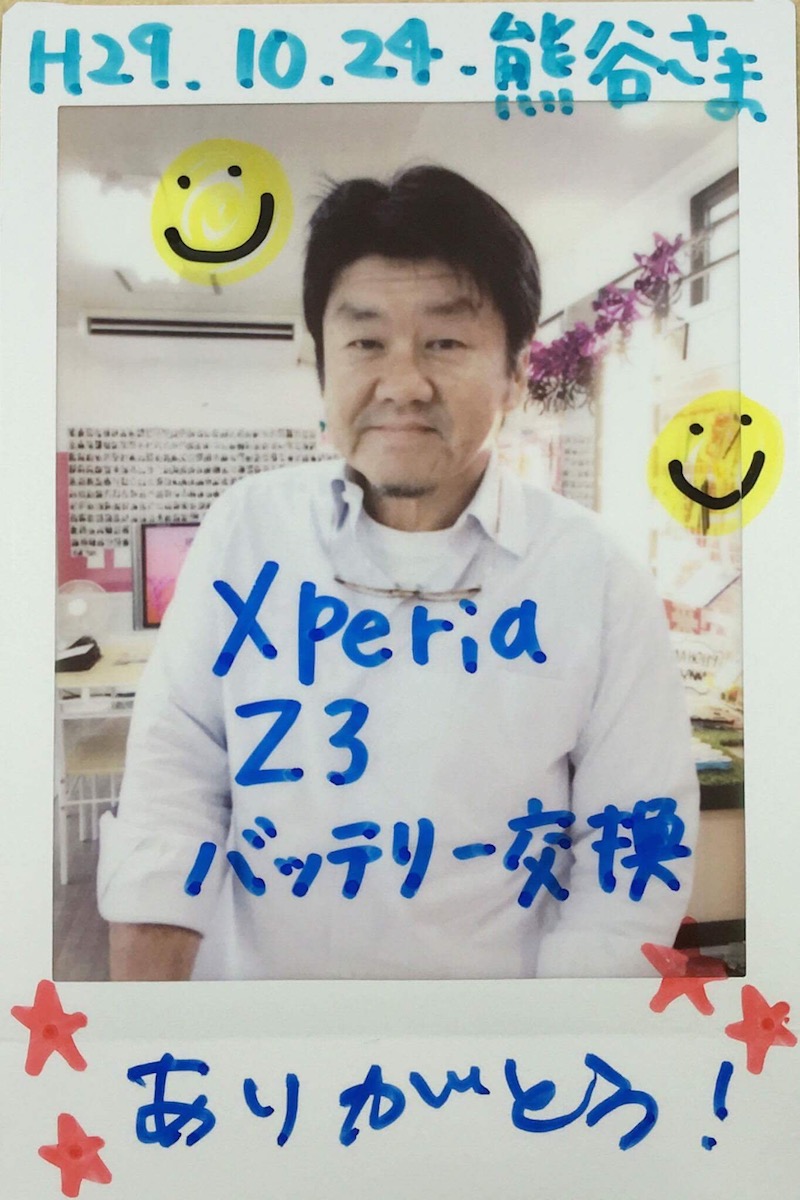 H29.10.24.熊谷さま
Xperia
Z3
バッテリー交換
ありがとう!